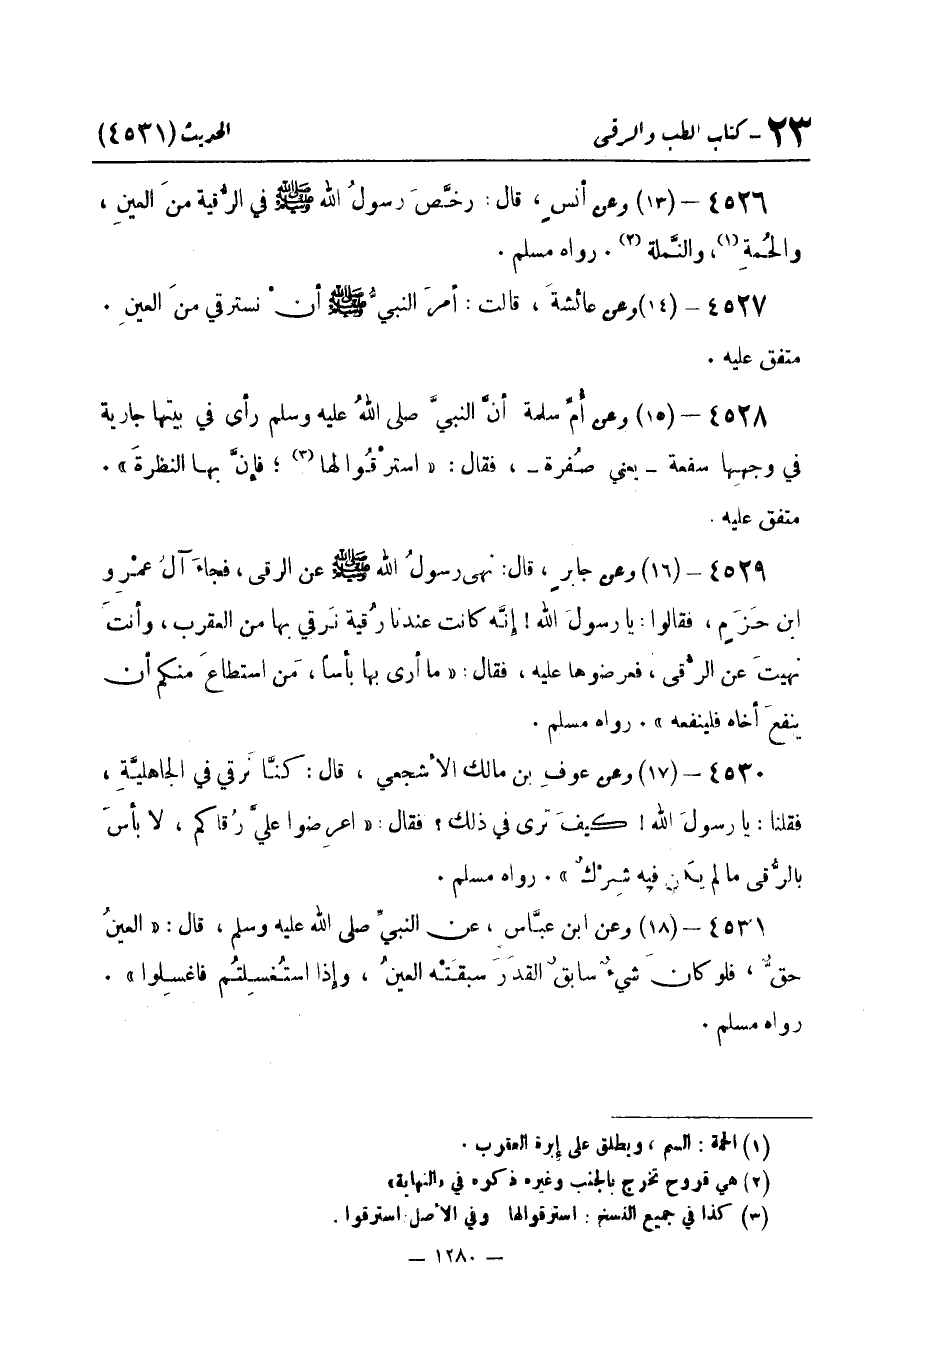 ٢٣ - كتاب الطب والرقى الحديث (٤٥٣١)
٤٥٢٦ - (١٣) وعن أنسٍ ، قال : رخَّصَ رسولُ الله ﷺ في الرُّقية منَ العينِ ،
والحُمةِ (١)، والنَّملة (٢) . رواه مسلم .
٤٥٢٧ - (١٤) وعن عائشةَ ، قالت : أمرَ النبيُّ ﷺ أنْ نسترقي منَ العينِ .
متفق عليه .
٤٥٢٨ - (١٥) وعن أُمِّ سلمة أنَّ النبيَّ صلى اللهُ عليه وسلم رأى في بيتها جارية
في وجهِها سفعة - يعني صُفرة - ، فقال : « استرْقُوا لها (٣) ؛ فإنَّ بها النظرةَ » .
متفق عليه .
٤٥٢٩ - (١٦) وعن جابرٍ ، قال : نهى رسولُ الله ﷺ عن الرقى ، فجاءَ آلُ عمْرِو
ابن حَزمٍ ، فقالوا : يا رسولَ الله ! إنَّه كانت عندنا رُقية نَرقي بها من العقرب ، وأنتَ
نهيتَ عن الرُّقى ، فعرضوها عليه ، فقال : « ما أرى بها بأساً ، مَن استطاعَ منكم أن
ينفعَ أخاه فلينفعه » . رواه مسلم .
٤٥٣٠ - (١٧) وعن عوفِ بن مالك الأشجعي ، قال : كنَّا نَرقي في الجاهليَّةِ ،
فقلنا : يا رسولَ الله ! كيفَ تَرى في ذلك ؟ فقال : « اعرِضوا عليَّ رُقاكم ، لا بأسَ
بالرُّقى ما لم يكن فيه شِركٌ » . رواه مسلم .
٤٥٣١ - (١٨) وعن ابن عبَّاس ، عن النبيِّ صلى الله عليه وسلم ، قال : « العينُ
حقٌّ ، فلو كان شيءٌ سابقٌ القدَرَ سبقَتْه العينُ ، وإذا استُغسِلتُم فاغسِلوا » .
رواه مسلم .
(١) الحمة : السم ، ويطلق على إبرة العقرب .
(٢) هي قروح تخرج بالجنب وغيره ذكره في «النهاية»
(٣) كذا في جميع النسخ : استرقوا لها وفي الأصل : استرقوا .
- ١٢٨٠ -